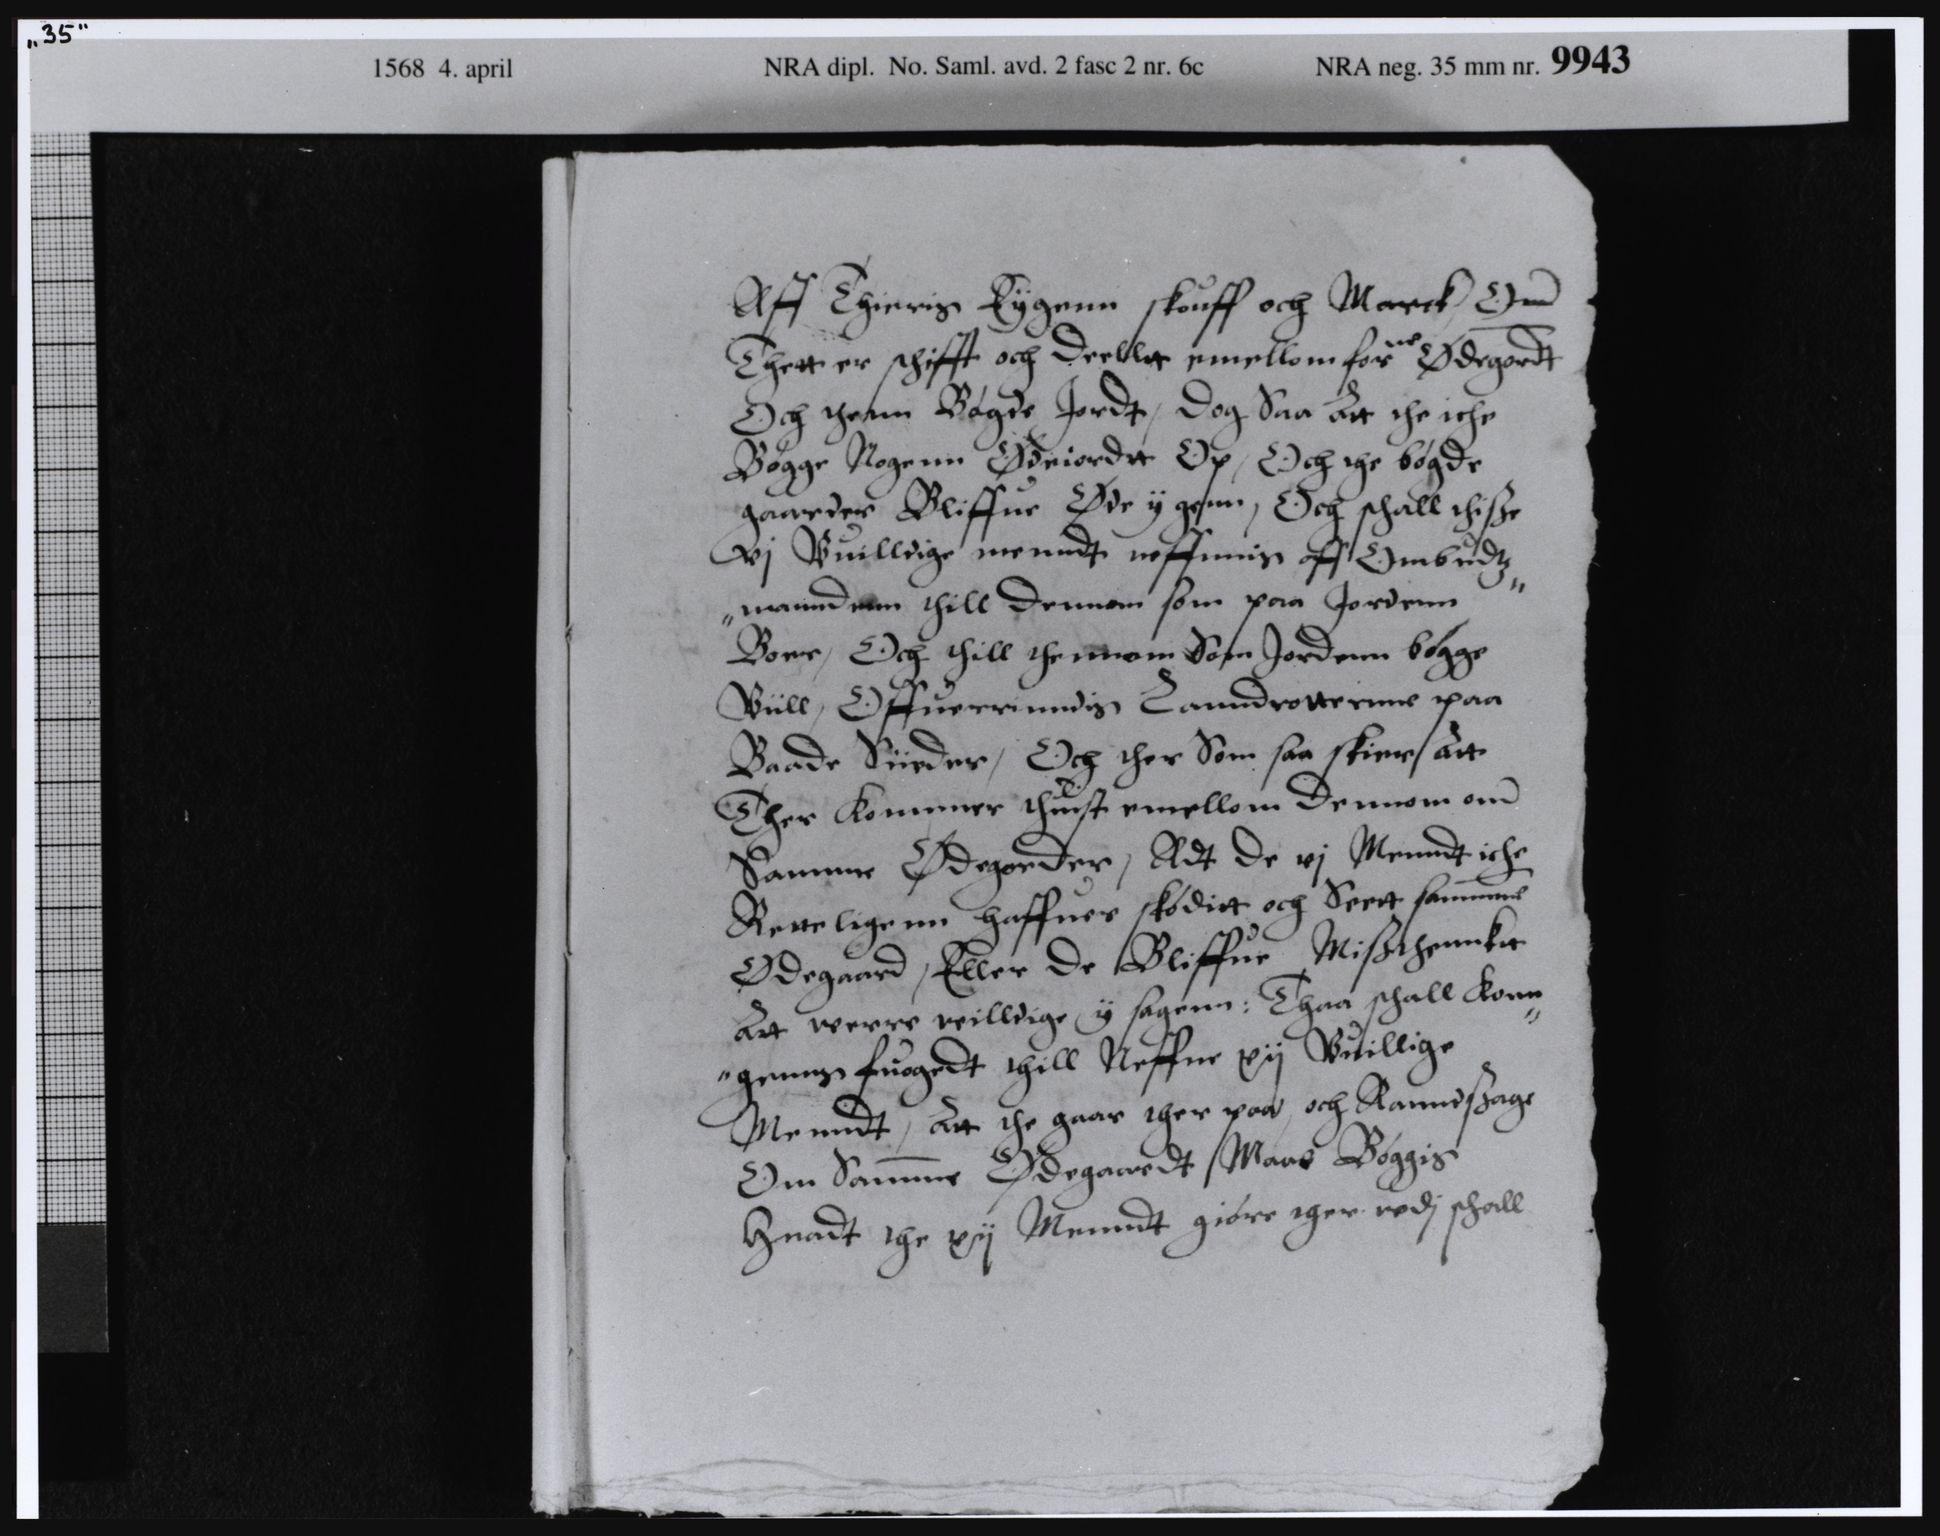 „35“
1568 4. april NRA dipl. No. Saml. avd. 2 fasc 2 nr. 6c NRA neg. 35 mm nr. 9943
Aff Thieris Eÿgenn skouff och Marck, Om
Thett er schifft och deellet emellom forne Ødegordt
Och thenn Bøgde Jordt, dog Saa Att the iche
Bøgge Nogenn Ødeiordtt Op, Och the bøgde
gaarder Bliffue Øde ÿ genn, Och schall thisse
vj Vuilldige menndt neffnnis aff Ombudtz„
„manndenn thill Dennom som paa Jordenn
Boer, Och thill thennom Som Jordenn bøgge
Vüll, Offuerrinndis Lanndrotterne paa
Baade Süeder, Och ther Som saa skier Att
Ther Kommer thuist emellom Dennom om
Samme Ødegorder, Adt de vj Menndt iche
Retteligenn haffuer skøditt och Seett samme
Ødegaard, Eller de Bliffue Missthennkt
Att werre veilldige ÿ sagenn: Thaa schall Konn„
„genns fuogedt thill Neffne xij Vuillige
Menndt, Att the gaar ther paa, och Ranndssage
Om Samme Ødegaardt Maa Bøggis
Huadt the xij Menndt giøre ther vedj schall